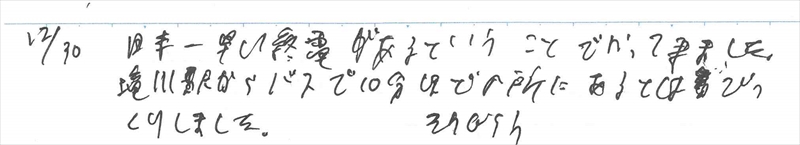 12/30 日本一早い終電があるということでやってきました。
滝川駅からバスで10分ほどの所にあるとは びっ
くりしました。